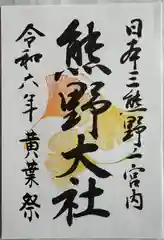 日本三熊野一宮内
熊野大社
令和六年 黄葉祭